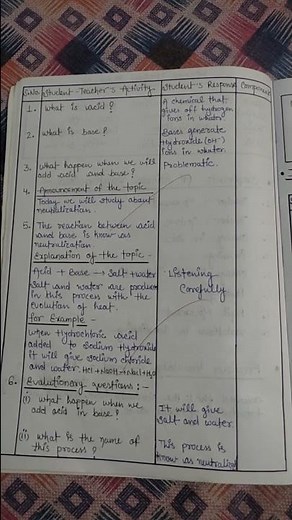 S.No. Student-Teacher's Activity Student's Response Component
1. What is acid? A chemical that
gives off hydrogen
ions in water.
2. What is base? Bases generate
Hydroxide (OH⁻)
ions in water.
3. What happen when we will Problematic.
add acid and base?
4. Announcement of the topic
Today we will study about
neutralization.
5. The reaction between acid
and base is know as
neutralization.
Explanation of the topic -
Acid + Base → Salt + water Listening
Salt and water are produce Carefully
in this process with the
evolution of heat.
for Example -
when Hydrochloric acid
added to Sodium Hydroxide
it will give sodium chloride
and water. HCl + NaOH → NaCl + H₂O
6. Evaluationary questions :-
(i) what happen when we It will give
add acid in base? salt and water
(ii) what is the name of This process is
this process? know as neutralization